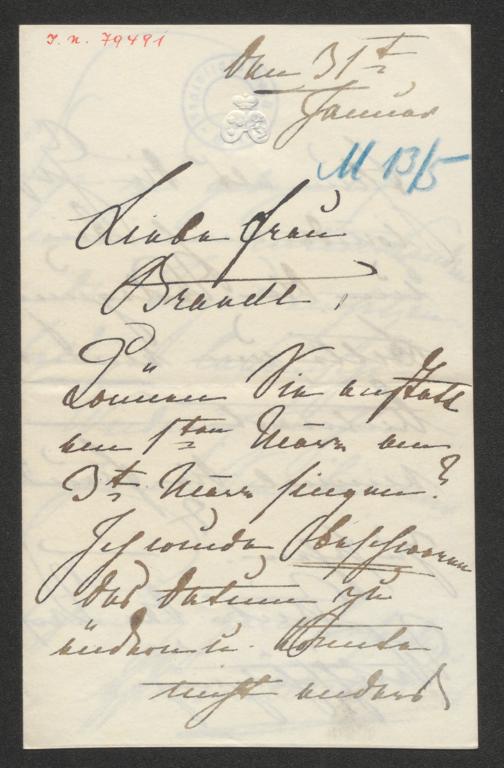 J. N. 79491
den 31t
Januar
M 13/5
Liebe Frau
Brandt,
Können Sie anstatt
am 1ten März am
3t März singen?
Ich wurde beschworen
das Datum zu
ändern u. konnte
nicht anders